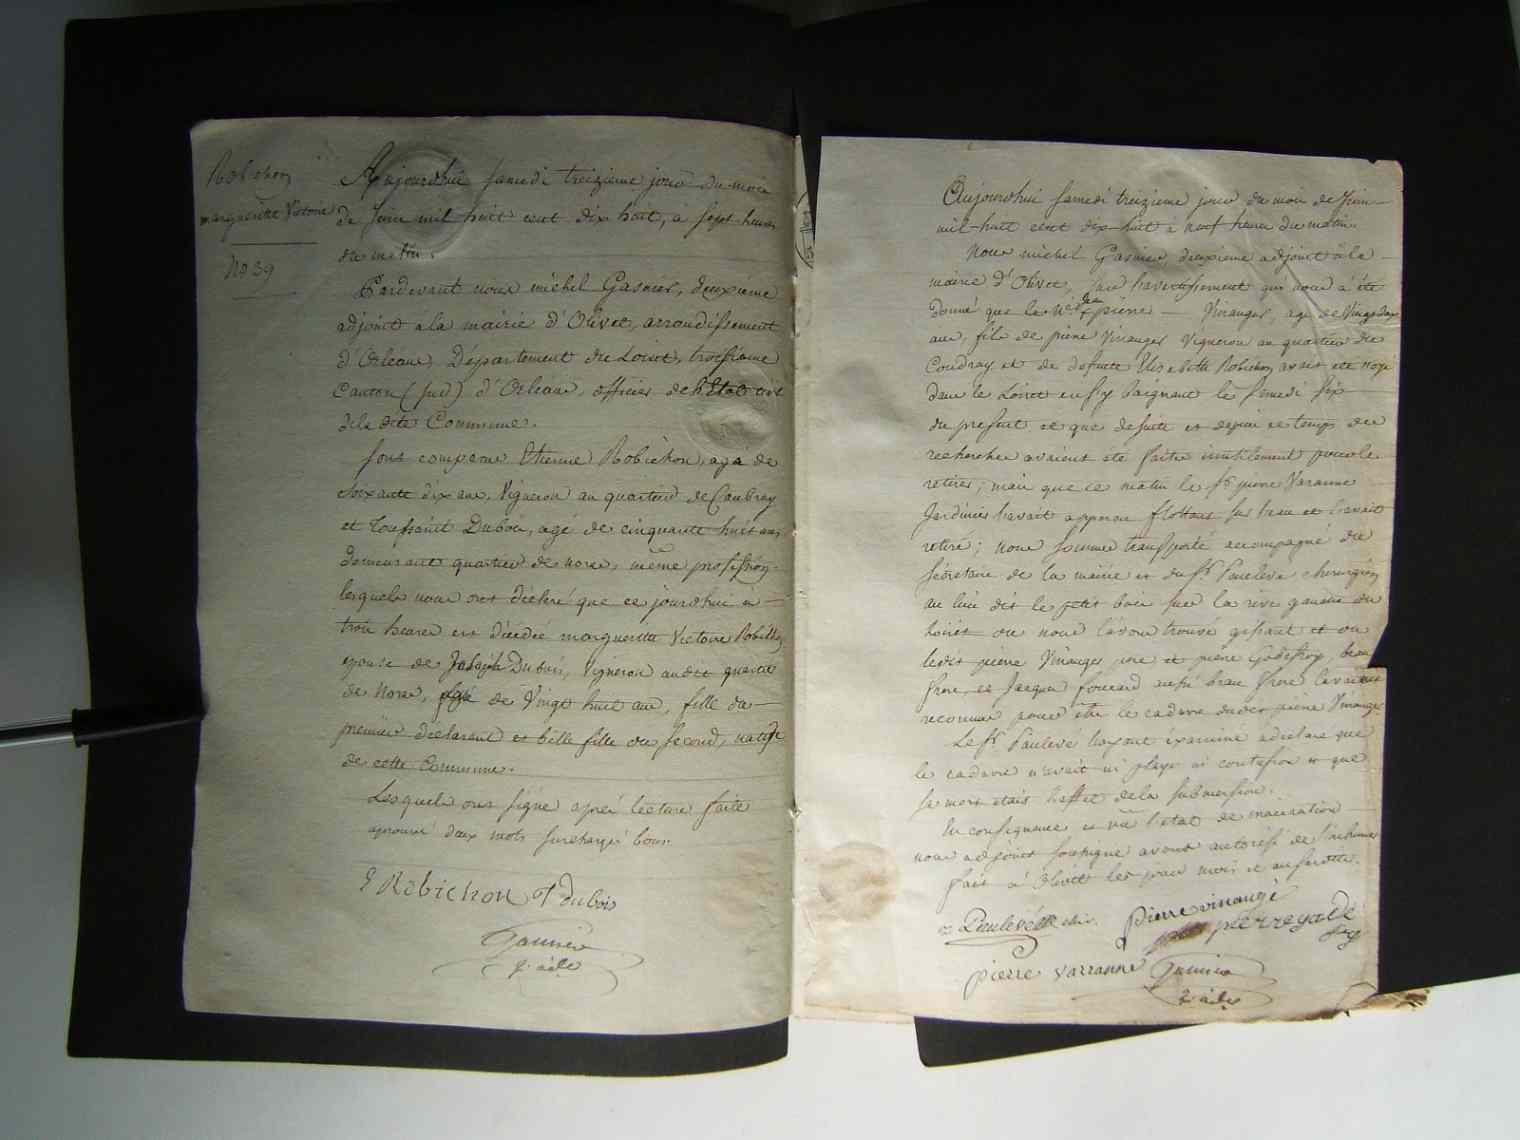 Robichon
marguerite Victoire
No 39
Aujourdhui samedi treizieme jour du mois
de Juin mil huit cent dix huit, à sept heures
du matin.
Pardevant nous michel Gasnier, deuxieme
adjoint à la mairie d'Olivet, arrondissement
d'Orleans, Département du Loiret, troisieme
Canton (sud) d'Orleans, officier de l'Etat civil
de la dite Commune.
sont comparus Etienne Robichon, agé de
soixante dix ans, Vigneron au quartier de Caubray
et Toussaint Dubois, agé de cinquante huit ans,
demeurant quartier de nores, même profession,
lesquels nous ont déclaré que ce jourdhui à
trois heures est décedée marguerite Victoire Robichon
epouse de Joseph Dubois, Vigneron audit quartier
de Nores, agée de Vingt huit ans, fille du
premier déclarant et belle fille du second, native
de cette Commune.
Lesquels ont signé après lecture faite
aprouvé deux mots surchargé bon.
E Robichon T dubois
Gasnier
2e adjt
Aujourdhui samedi treizieme jour du mois de Juin
mil huit cent dix huit à neuf heures du matin.
Nous michel Gasnier, deuxieme adjoint à la
mairie d'Olivet, sur l'avertissement qui nous à été
donné que le né pierre Vinauger, agé de Vingt deux
ans, fils de pierre Vinauger Vigneron au quartier du
Coudray et de defunte Robichon avait été noyé
dans le Loiret en s'y baignant le samedi six
du present ce que de suite et depuis ce temps des
recherches avaient été faites inutilement pour le
retirer; mais que ce matin le sr pierre Varanne
Jardinier l'avait apperçu flottant sur l'eau et l'avait
retiré; nous sommes transporté accompagné du
sécretaire de la mairie et du sr Paulevé chirurgien
au lieu dit le petit bois sur la rive gauche du
Loiret ou nous l'avons trouvé gissant et ou
ledit pierre Vinauger pere et pierre Godefroy, beau
frere, et Jacques foucard aussi beau frere l'avaient
reconnu pour être le cadavre dudit pierre Vinauger
Le sr Paulevé l'ayant éxaminé a déclaré que
le cadavre n'avait ni playe ni contusion et que
sa mort etait l'effet de la submersion.
En consequence et vu l'etat de maceration
nous adjoint soussigné avons autorisé de l'inhumer
fait à Olivet les jour mois et an susdits.
Paulevé chir. pierre vinaugé
pierre varranne Gasnier
2e adjt